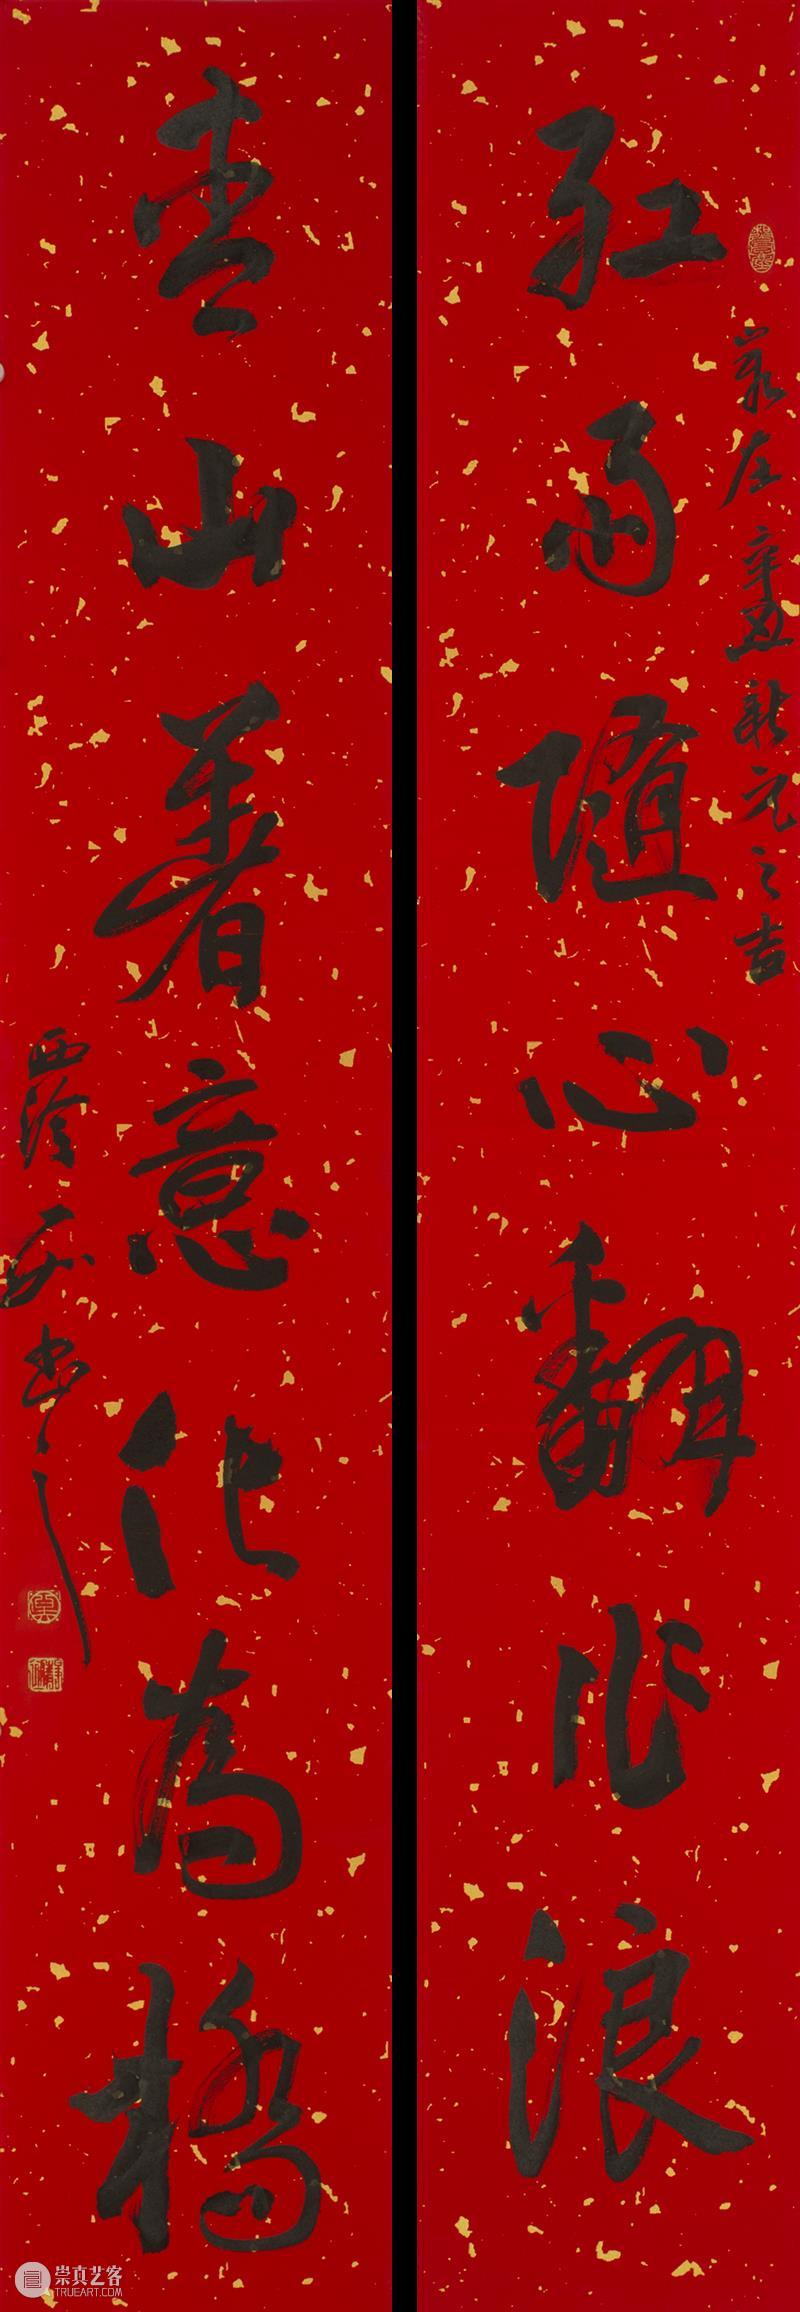 紅雨隨心翻作浪
歲在辛丑新元之吉
青山著意化為橋
西泠 書
崇真艺客
TRUEART.COM